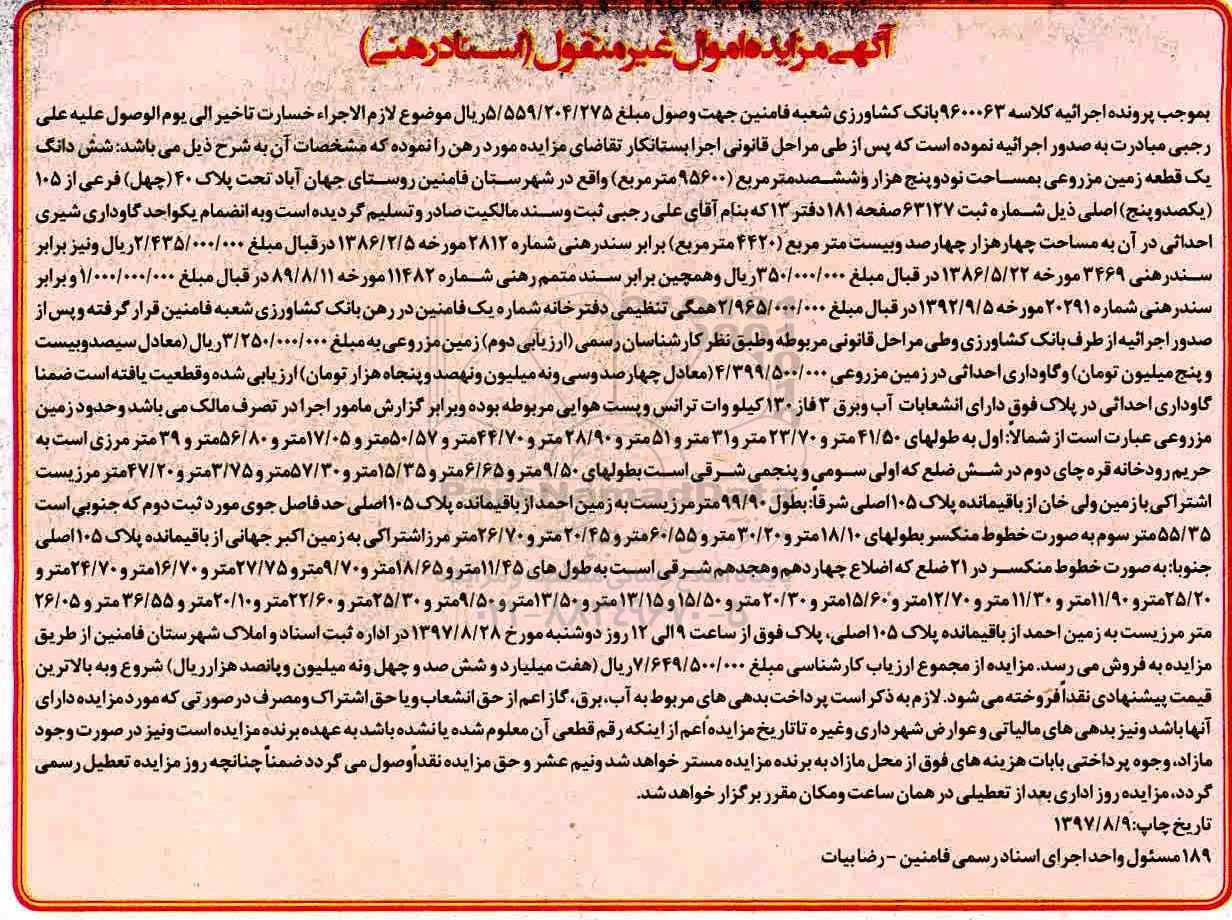 آگهی مزایده اموال غیر منقول (اسناد رهنی)
بموجب پرونده اجرائیه کلاسه ۹۶۰۰۰۶۳ بانک کشاورزی شعبه فامنین جهت وصول مبلغ ۵/۵۵۹/۲۰۴/۲۷۵ ریال موضوع لازم الاجراء خسارت تاخیر الی یوم الوصول علیه علی
رجبی مبادرت به صدور اجرائیه نموده است که پس از طی مراحل قانونی اجرا بستانکار تقاضای مزایده مورد رهن را نموده که مشخصات آن به شرح ذیل می باشد: شش دانگ
یک قطعه زمین مزروعی بمساحت نودوپنج هزار وششصدمتر مربع (۹۵۶۰۰ متر مربع) واقع در شهرستان فامنین روستای جهان آباد تحت پلاک ۴۰ (چهل) فرعی از ۱۰۵
(یکصدو پنج) اصلی ذیل شماره ثبت ۶۳۱۲۷ صفحه ۱۸۱ دفتر ۱۳ که بنام آقای علی رجبی ثبت وسند مالکیت صادر و تسلیم گردیده است وبه انضمام یکواحد گاوداری شیری
احداثی در آن به مساحت چهار هزار چهارصد وبیست متر مربع (۴۴۲۰ متر مربع) برابر سند رهنی شماره ۲۸۱۲ مورخه ۱۳۸۶/۲/۵ درقبال مبلغ ۲/۴۳۵/۰۰۰/۰۰۰ ریال ونیز برابر
سند رهنی ۳۴۶۹ مورخه ۱۳۸۶/۵/۲۲ در قبال مبلغ ۳۵۰/۰۰۰/۰۰۰ ریال وهمچین برابر سند متمم رهنی شماره ۱۱۴۸۲ مورخه ۸۹/۸/۱۱ در قبال مبلغ ۱/۰۰۰/۰۰۰/۰۰۰ و برابر
سند رهنی شماره ۲۰۲۹۱ مورخه ۱۳۹۲/۹/۵ در قبال مبلغ ۲/۹۶۵/۰۰۰/۰۰۰ همگی تنظیمی دفتر خانه شماره یک فامنین در رهن بانک کشاورزی شعبه فامنین قرار گرفته و پس از
صدور اجرائیه از طرف بانک کشاورزی وطی مراحل قانونی مربوطه وطبق نظر کارشناسان رسمی (ارزیابی دوم) زمین مزروعی به مبلغ ۳/۲۵۰/۰۰۰/۰۰۰ ریال (معادل سیصدوبیست
و پنج میلیون تومان) و گاوداری احداثی در زمین مزروعی ۴/۳۹۹/۵۰۰/۰۰۰ (معادل چهارصد وسی ونه میلیون ونهصد و پنجاه هزار تومان) ارزیابی شده وقطعیت یافته است ضمنا
گاوداری احداثی در پلاک فوق دارای انشعابات آب وبرق ۳ فاز ۱۳۰ کیلو وات ترانس و پست هوایی مربوطه بوده وبرابر گزارش مامور اجرا در تصرف مالک می باشد وحدود زمین
مزروعی عبارت است از شمالاً: اول به طولهای ۴۱/۵۰ متر و ۲۳/۷۰ متر و۳۱ متر و ۵۱ متر و ۲۸/۹۰ متر و ۴۴/۷۰متر و ۵۰/۵۷متر و ۱۷/۰۵متر و ۵۶/۸۰متر و ۳۹ متر مرزی است به
حریم رودخانه قره چای دوم در شش ضلع که اولی سومی و پنجمی شرقی است بطولهای ۹/۵۰متر و ۶/۶۵متر و ۱۵/۳۵متر و ۵۷/۳۰متر و ۳/۷۵متر و ۴۷/۲۰متر مرزیست
اشتراکی با زمین ولی خان از باقیمانده پلاک ۱۰۵ اصلی شرقاً: بطول ۹۹/۹۰ متر مرزیست به زمین احمد از باقیمانده پلاک ۱۰۵ اصلی حد فاصل جوی مورد ثبت دوم که جنوبی است
۵۵/۳۵ متر سوم به صورت خطوط منکسر بطولهای ۱۸/۱۰متر و ۳۰/۲۰متر و ۶۰/۵۵متر و ۲۰/۴۵متر و ۲۶/۷۰متر مرز اشتراکی به زمین اکبر جهانی از باقیمانده پلاک ۱۰۵ اصلی
جنوبا: به صورت خطوط منکسر در ۲۱ ضلع که اضلاع چهاردهم وهجدهم شرقی است به طول های ۱۱/۴۵متر و ۱۸/۶۵متر و ۹/۷۰متر و ۲۷/۷۵متر و ۱۶/۷۰متر و ۲۴/۷۰متر و
۲۵/۲۰متر و ۱۱/۹۰متر و ۱۱/۳۰ متر و ۱۲/۷۰متر و ۱۵/۶۰متر و ۲۰/۳۰ متر و ۱۵/۵۰ و ۱۳/۱۵متر و ۱۳/۵۰متر و ۹/۵۰متر و ۲۵/۳۰متر و ۲۲/۶۰متر و ۲۰/۱۰متر و ۳۶/۵۵ متر و ۲۶/۰۵
متر مرزیست به زمین احمد از باقیمانده پلاک ۱۰۵ اصلی، پلاک فوق از ساعت ۹ الی ۱۲ روز دوشنبه مورخ ۱۳۹۷/۸/۲۸ در اداره ثبت اسناد و املاک شهرستان فامنین از طریق
مزایده به فروش می رسد. مزایده از مجموع ارزیاب کارشناسی مبلغ ۷/۶۴۹/۵۰۰/۰۰۰ ریال (هفت میلیارد و شش صد و چهل ونه میلیون و پانصد هزار ریال) شروع وبه بالاترین
قیمت پیشنهادی نقداً فروخته می شود. لازم به ذکر است پرداخت بدهی های مربوط به آب، برق، گاز اعم از حق انشعاب ویا حق اشتراک ومصرف در صورتی که مورد مزایده دارای
آنها باشد ونیز بدهی های مالیاتی و عوارض شهرداری وغیره تا تاریخ مزایده اعم از اینکه رقم قطعی آن معلوم شده یا نشده باشد به عهده برنده مزایده است ونیز در صورت وجود
مازاد، وجوه پرداختی بابات هزینه های فوق از محل مازاد به برنده مزایده مستر خواهد شد ونیم عشر و حق مزایده نقداً وصول می گردد ضمناً چنانچه روز مزایده تعطیل رسمی
گردد، مزایده روز اداری بعد از تعطیلی در همان ساعت ومکان مقرر برگزار خواهد شد.
تاریخ چاپ: ۱۳۹۷/۸/۹
۱۸۹ مسئول واحد اجرای اسناد رسمی فامنین - رضا بیات